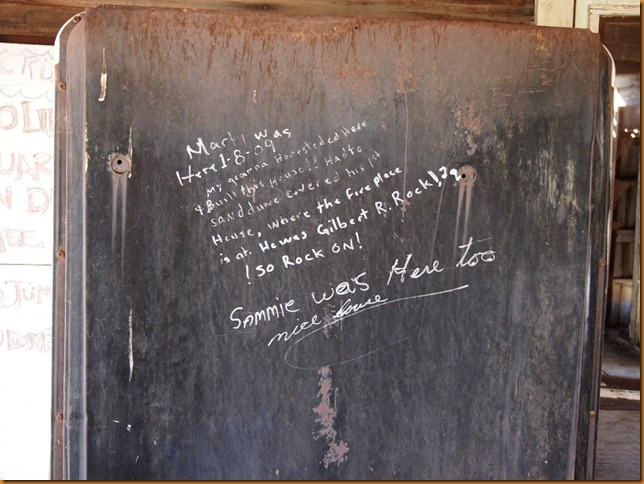 Marty was
Here 1-8-09
My Homesteded Here
& Built this House!! Hadto
SAND dune covered his 1st
House, where the fireplace
is at. He was Gilbert R. Rock!
! SO ROCK ON!
SAMMIE was Here too
nice house